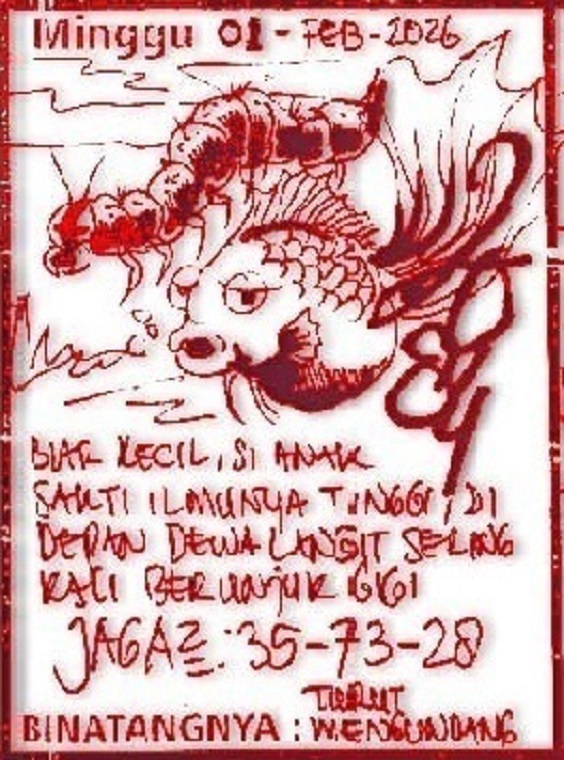 Minggu 01 - FEB - 2026
BIAR KECIL, SI ANAK
SAKTI ILMUNYA TINGGI, DI
DEPAN DEWA LANGIT SERING
KALI BERUNJUK GIGI
JAGA2 : 35-73-28
BINATANGNYA : MENGUNDANG